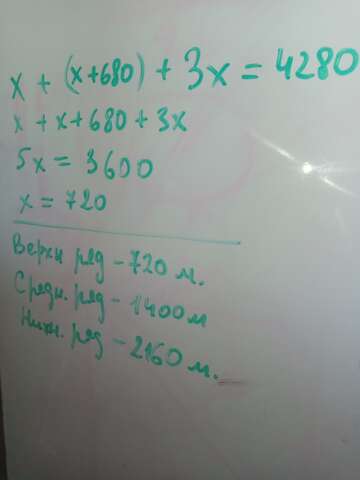 x + (x+680) + 3x = 4280
x + x + 680 + 3x
5x = 3600
x = 720
Верхн ряд - 720 м.
Средн. ряд - 1400м
Нижн. ряд - 2160 м.